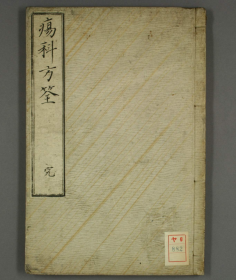 瘍科方筌
完